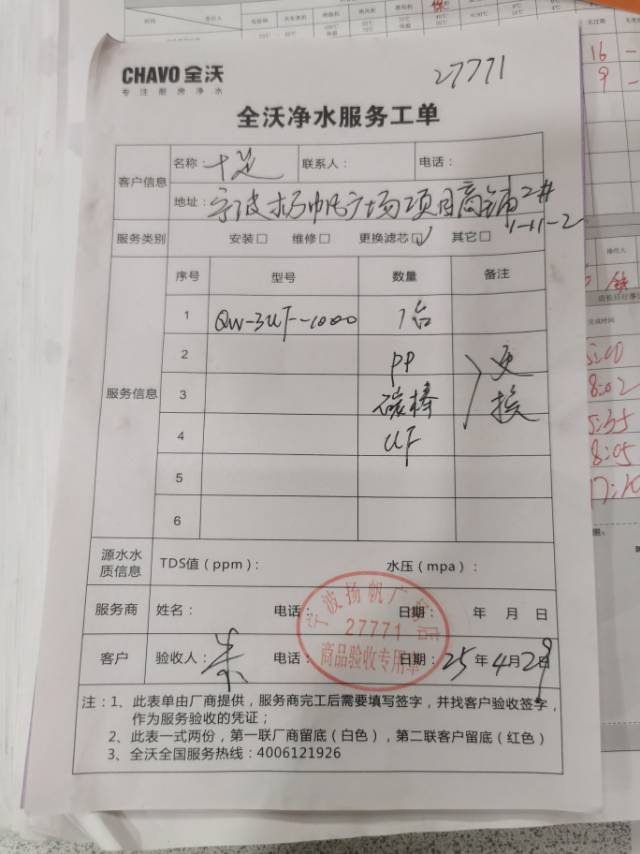 CHAVO 全沃
专注厨房净水
27771
全沃净水服务工单
客户信息
名称：十足 联系人： 电话：
地址：宁波扬帆广场项目商铺2#
1-11-2
服务类别 安装□ 维修□ 更换滤芯☑ 其它□
服务信息
序号 型号 数量 备注
1 QW-3UF-1000 1台
2 PP 更
3 碳棒 换
4 UF
5
6
源水水质信息 TDS值（ppm）： 水压（mpa）：
服务商 姓名： 电话： 日期： 年 月 日
客户 验收人：朱 电话： 日期：25年4月29日
宁波扬帆广场店
27771
商品验收专用章
注：1、此表单由厂商提供，服务商完工后需要填写签字，并找客户验收签字，
作为服务验收的凭证；
2、此表一式两份，第一联厂商留底（白色），第二联客户留底（红色）
3、全沃全国服务热线：4006121926
时间
操作人
完成时间
16
9
8:02
8:05